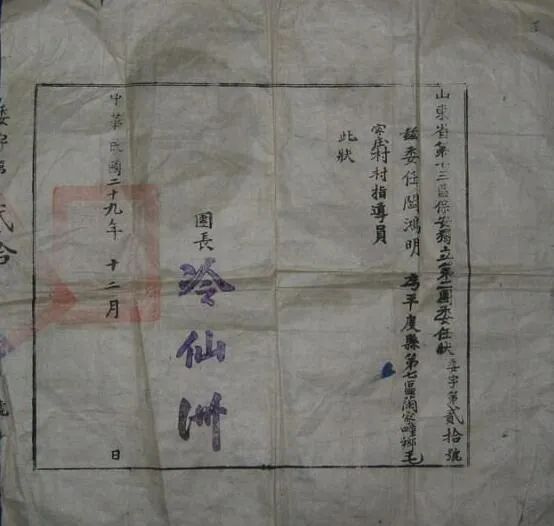 山東省第十三區保安獨立第二團委任狀 委字第貳拾號
茲委任閻鴻明 為平度縣第七區蘭家疃鄉毛
家庄村村指導員
此狀
團長 冷仙洲
中華民國二十九年 十二月 日
委字第貳拾號